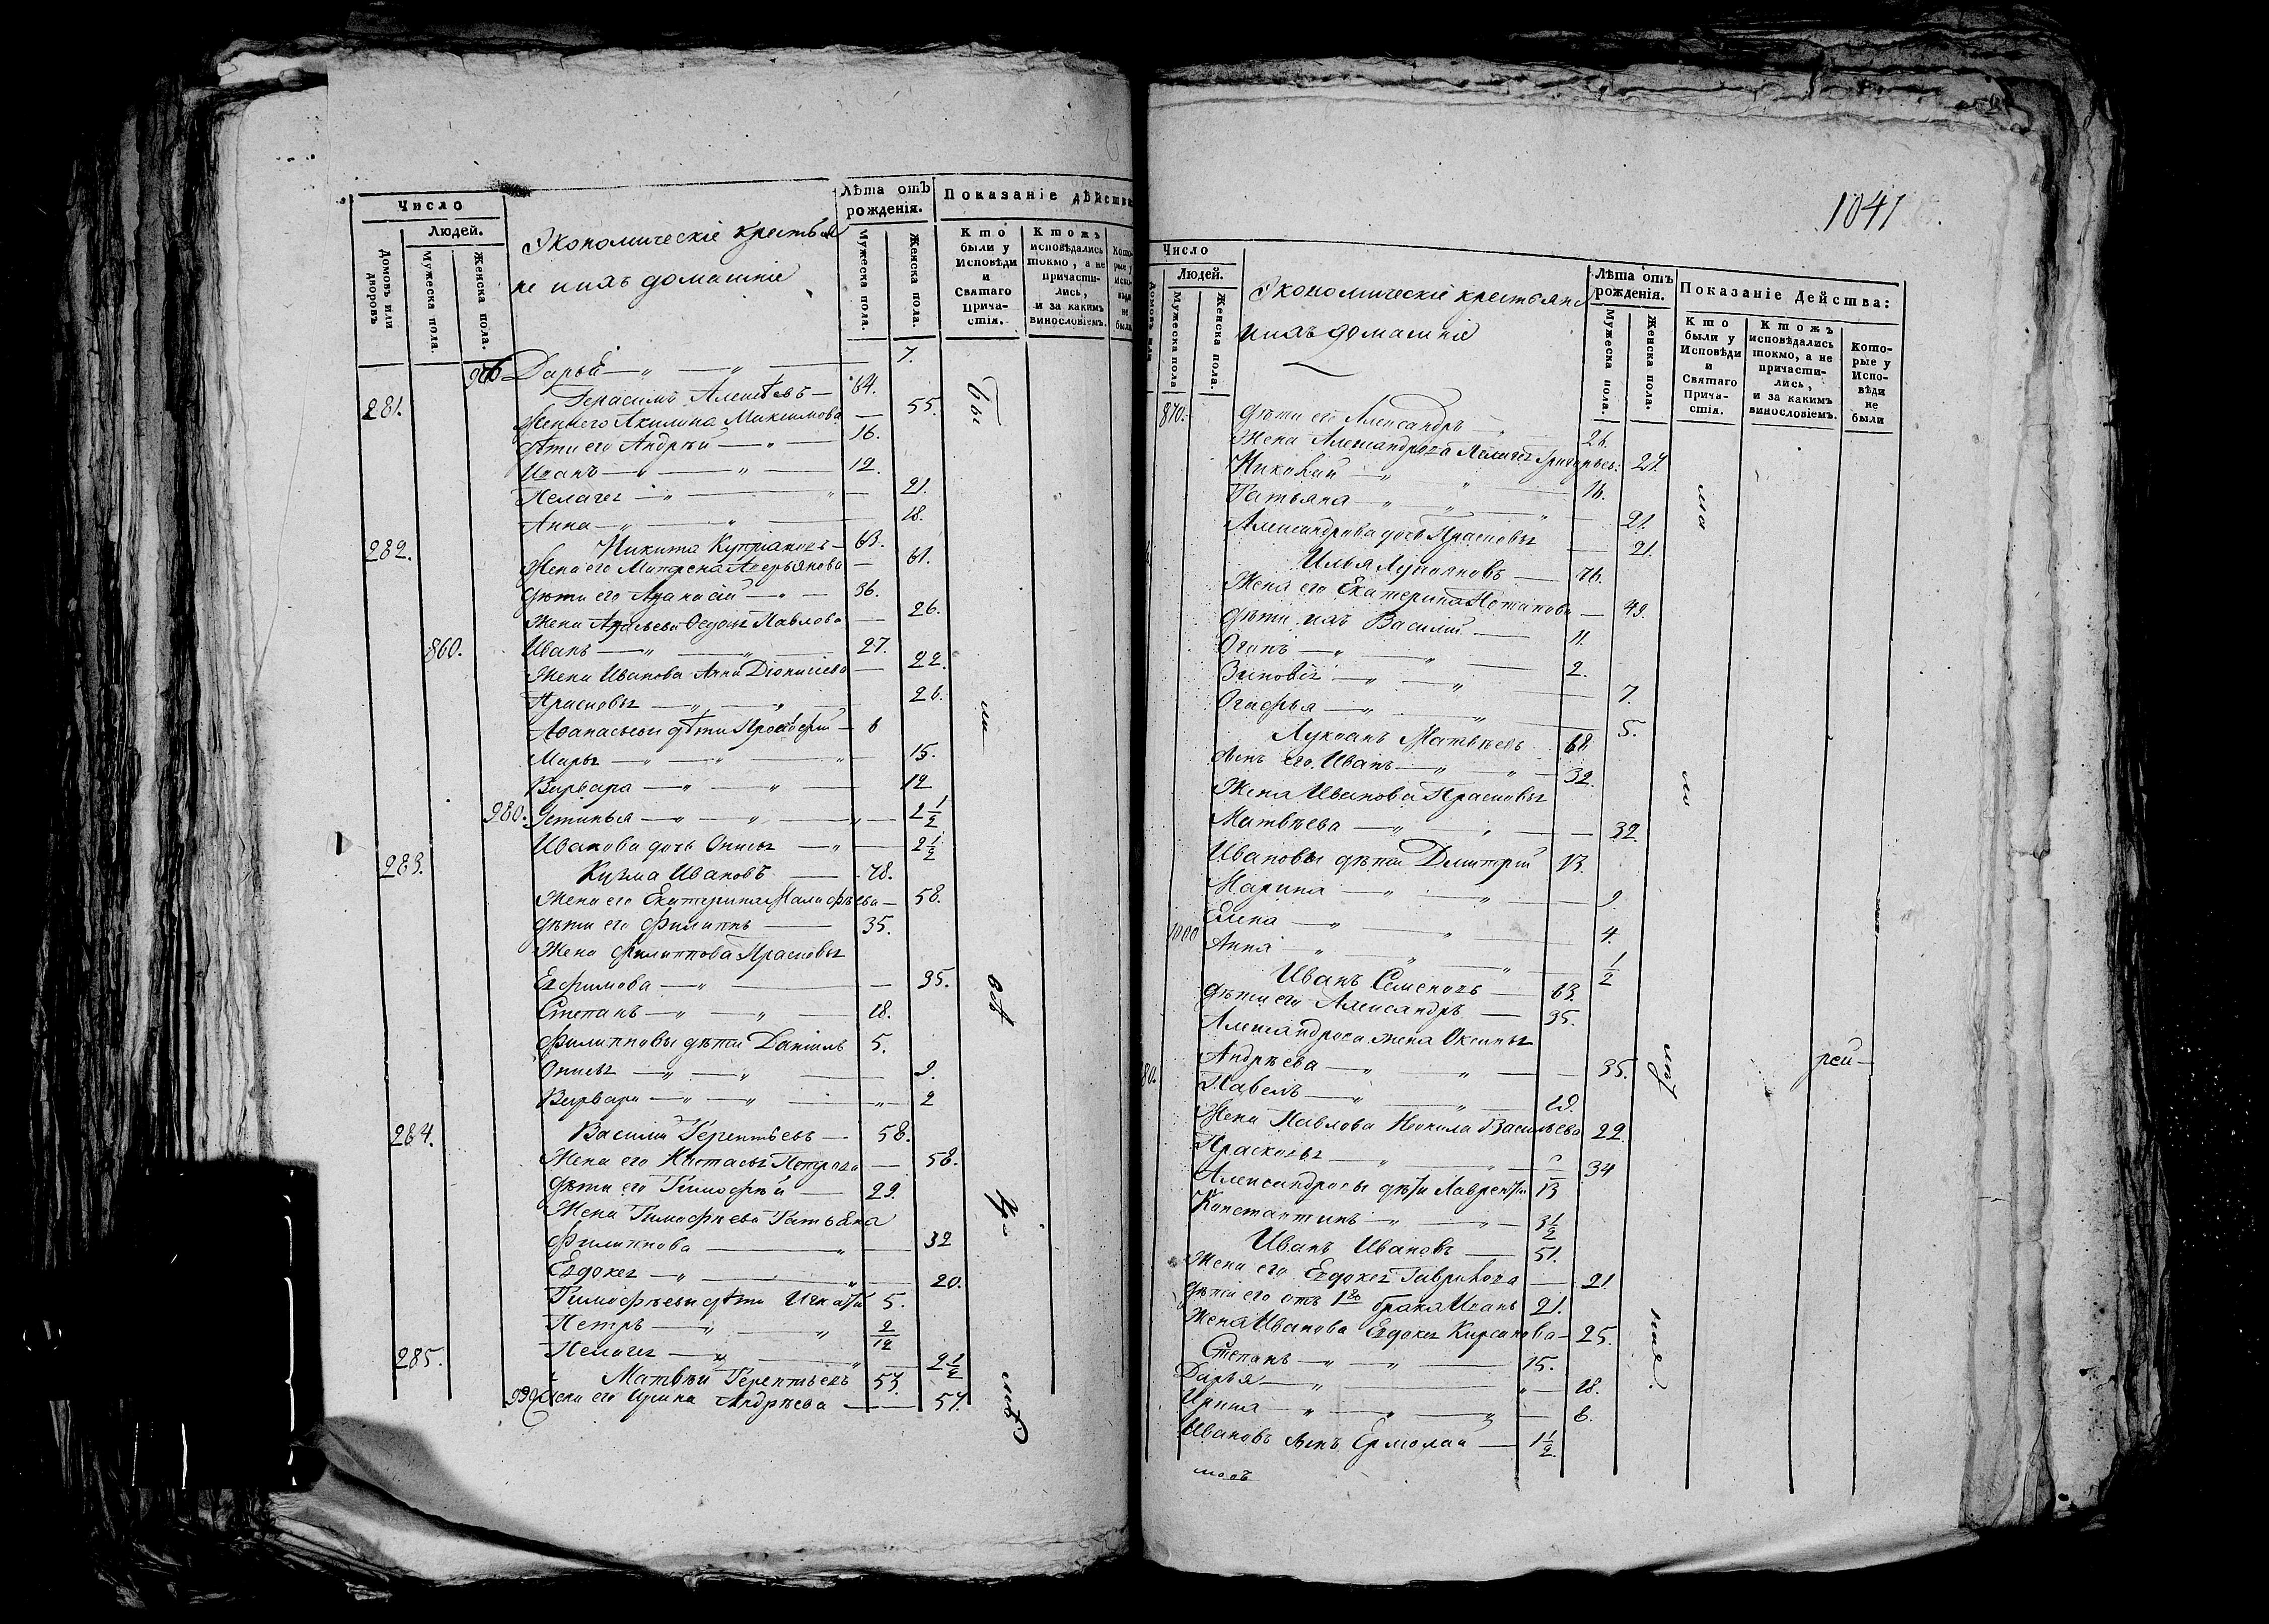 Число
Людей.
Домовъ или дворовъ
Мужеска пола.
Женска пола.
Экономическіе крестьян
е ихъ домашніе
Лѣта отъ рожденія.
Мужеска пола.
Женска пола.
Показаніе дѣйства
Кто были у Исповѣди и Святаго Причастія.
Ктожъ исповѣдались токмо, а не причастились, и за какимъ винословіемъ.
Которые у Исповѣди не были
Дарья — 7.
281. Герасимъ Алексѣевъ — 64.
Жена его Акилина Максимова — 55.
Дѣти его Андрѣй — 16.
Иванъ — 12.
Пелагея — 21.
Анна — 18.
282. Никита Купріановъ — 63.
Жена его Матрена Аверьянова — 61.
Дѣти его Афанасій — 36.
Жена Павлова — 26.
860. Иванъ — 27.
Жена Иванова Анна Діонисіева — 22.
Прасковья — 26.
Афанасьевы дѣти — 6
Марья — 15.
Варвара — 12
980. Устинья — 2 1/2
Иванова дочь Анисья — 2 1/2
283. Кузма Ивановъ — 78.
Жена его Екатерина — 58.
Дѣти его Филиппъ — 35.
Жена Филиппова Прасковья
Ефимова — 35.
Степанъ — 18.
Филипповы дѣти Даніилъ 5.
Анисья — 9.
Варвара — 2
284. Василій Терентьевъ — 58.
Жена его Настасья Петрова — 58.
Дѣти его Тимофѣй — 29.
Жена Тимофѣева Татьяна
Филиппова — 32
Евдокея — 20.
Тимофѣевы дѣти Игнатій 5.
Петръ — 2/12
Пелагея — 2 1/2
285. Матвѣй Терентьевъ 53.
990 Жена его Ирина Андрѣева — 57.
Бы
ли
всѣ
1041
Число
Людей.
Домовъ или
Мужеска пола
Женска пола.
Экономическіе крестьяне
ихъ домашніе
Лѣта отъ рожденія.
Мужеска пола.
Женска пола.
Показаніе Дѣйства:
Кто были у Исповѣди и Святаго Причастія.
Ктожъ исповѣдались токмо, а не причастились, и за какимъ винословіемъ.
Которые у Исповѣди не были
870. Дѣти его Александръ — 26.
Жена Александрова Пелагея Григорьев: 24.
Николай — 16.
Татьяна — 21.
Александрова дочь Прасковья — 21.
Илья Лукіановъ — 76.
Жена его Екатерина Потапова — 49.
Дѣти ихъ Василій — 11.
— 2.
Зиновія — 7.
Огафья — 5.
Лукіанъ Матвѣевъ 68
Сынъ его Иванъ — 32.
Жена Иванова Прасковья
Матвѣева — 32
Ивановы дѣти Дмитрій 13.
Марина — 9.
Елена — 4.
1000 Анна — 1/2
Иванъ Семеновъ — 63.
Дѣти его Александръ — 35.
Александрова жена Оксинья
Андрѣева — 35.
80. Павелъ —
Жена Павлова Неонила Васильева 22.
Прасковья — 34
Александровы дѣти Лаврентій 13
Константинъ — 3 1/2
Иванъ Ивановъ — 51.
Жена его Евдокея Гаврилова — 21.
Дѣти его отъ 1го брака Иванъ 21.
Жена Иванова Евдокея Кирсанова — 25.
Степанъ — 15.
Дарья — 18.
Ирина — 6.
Ивановъ сынъ Ермолай — 1 1/2